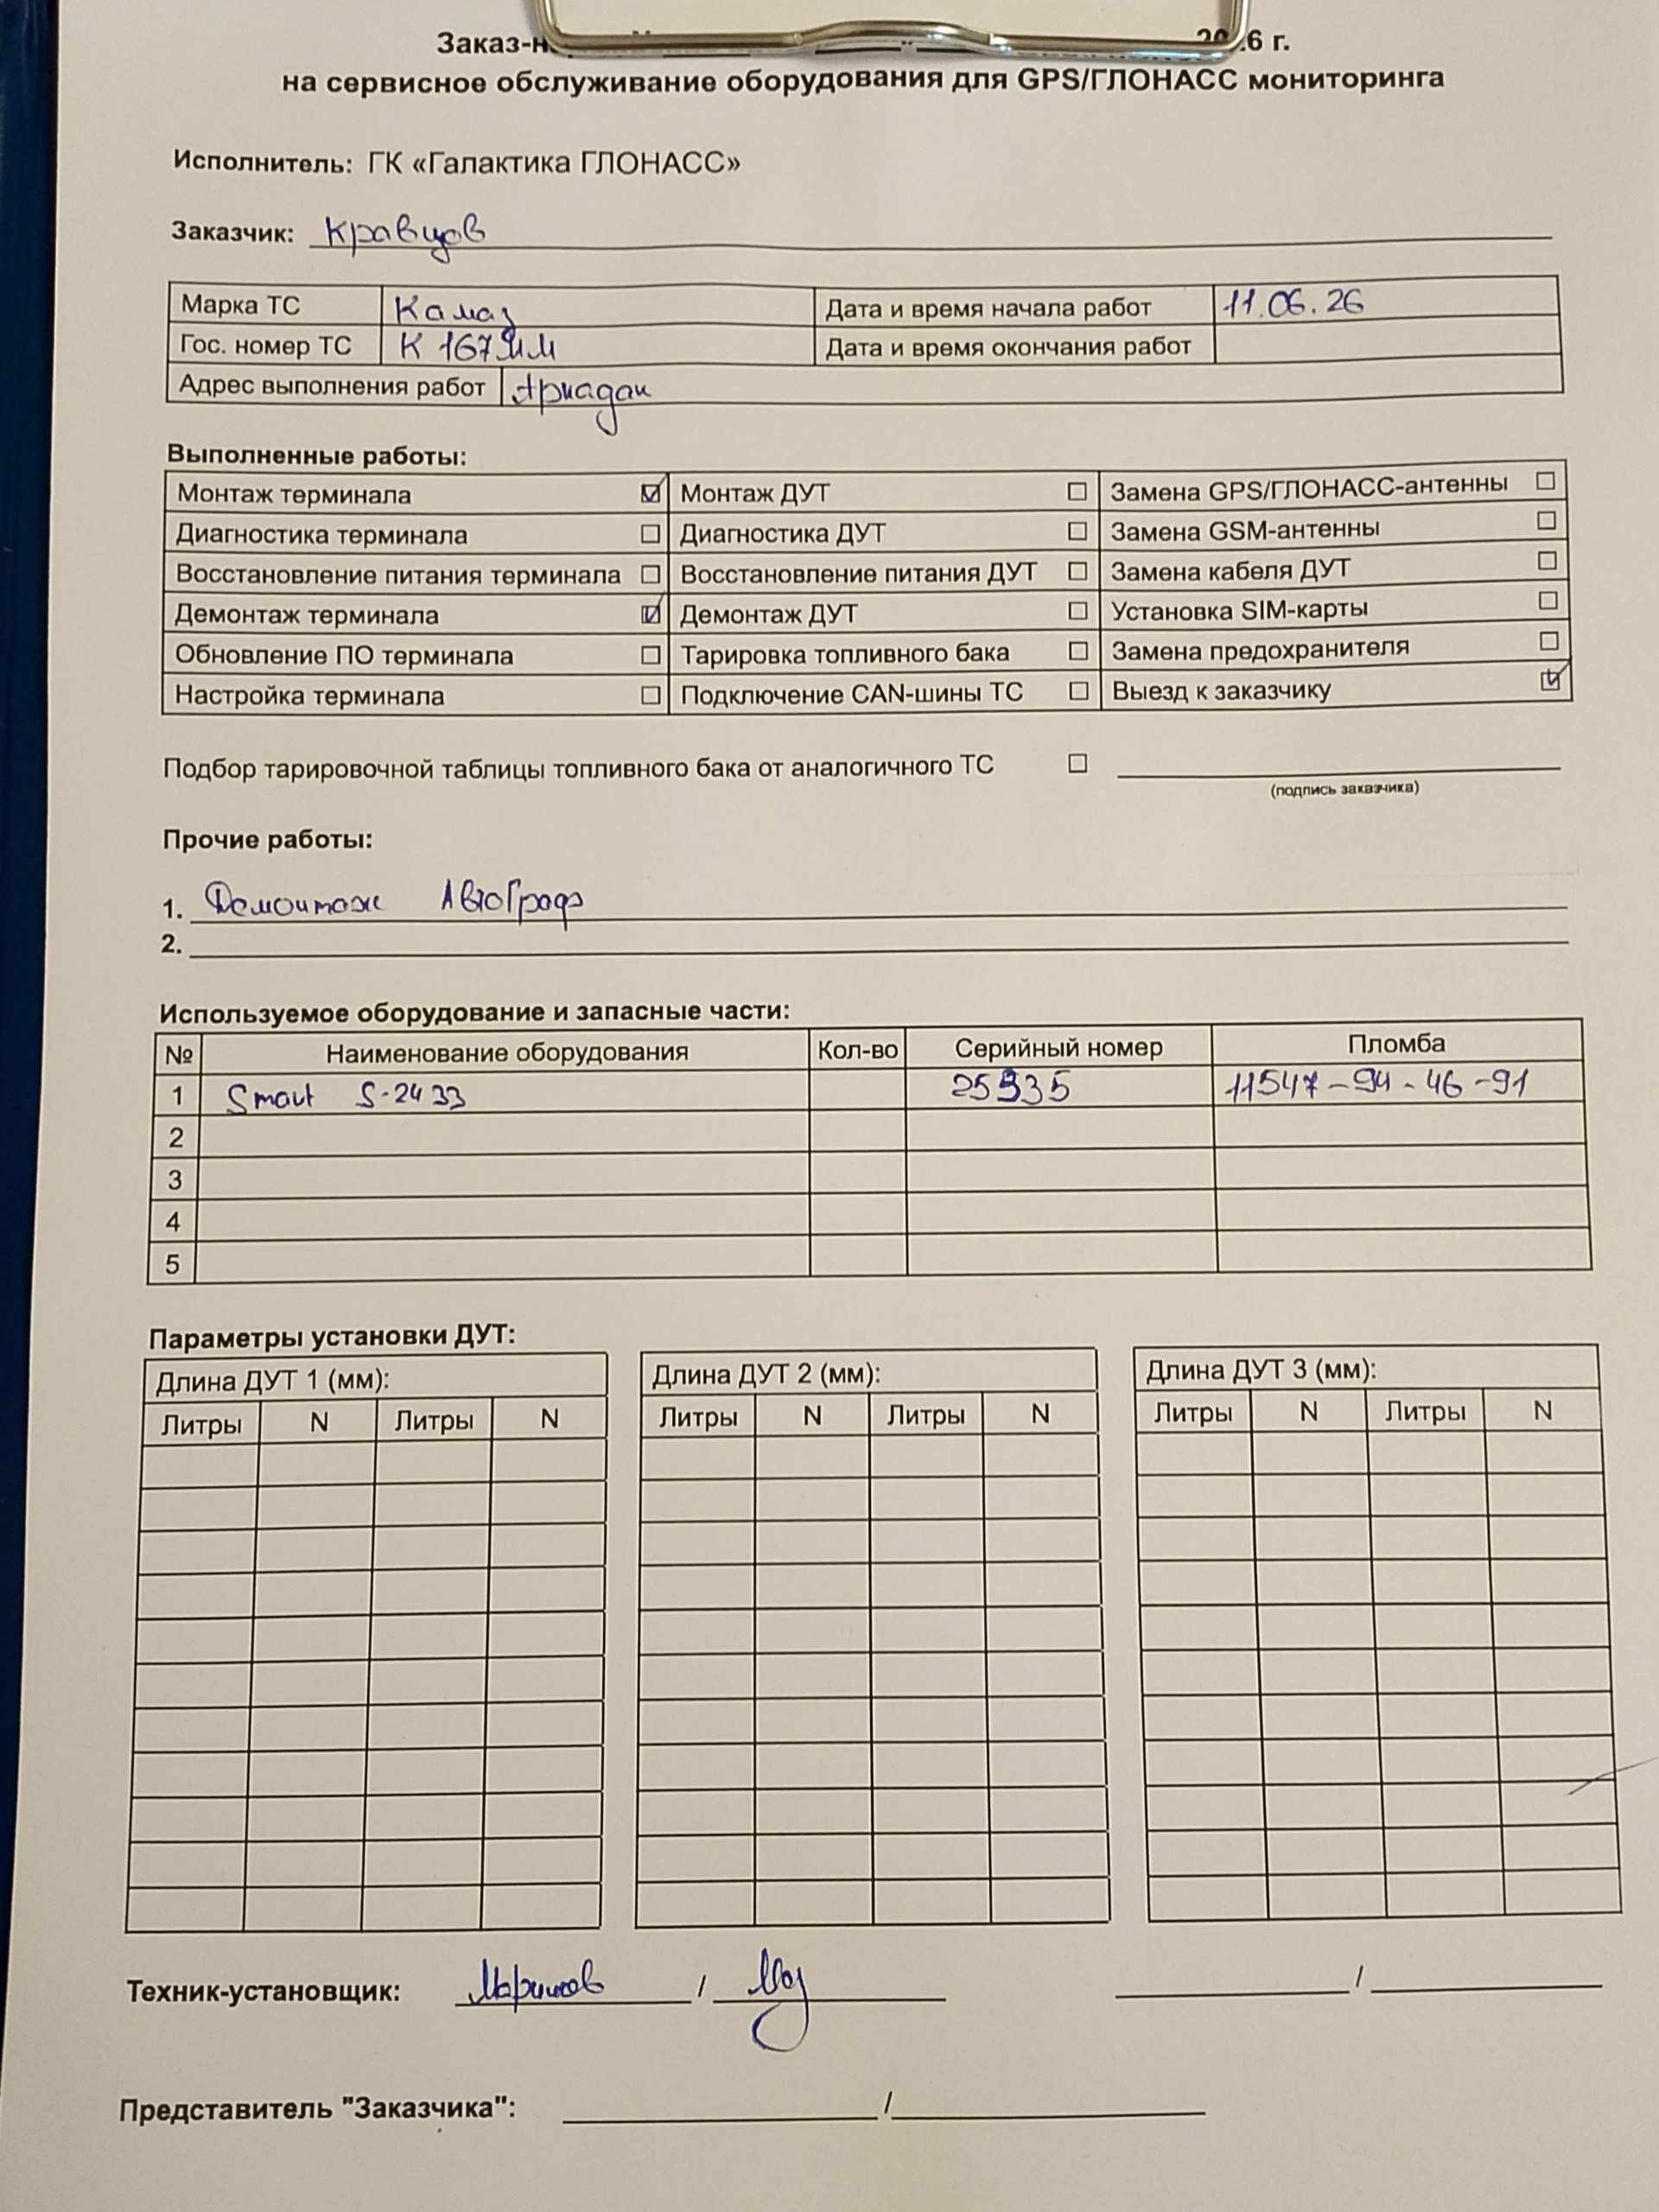 Заказ-н
6 г.
на сервисное обслуживание оборудования для GPS/ГЛОНАСС мониторинга
Исполнитель: ГК «Галактика ГЛОНАСС»
Заказчик: Кравцов
Марка ТС Камаз Дата и время начала работ 11.06.26
Гос. номер ТС К 167 Дата и время окончания работ
Адрес выполнения работ
Выполненные работы:
Монтаж терминала ☑ Монтаж ДУТ ☐ Замена GPS/ГЛОНАСС-антенны ☐
Диагностика терминала ☐ Диагностика ДУТ ☐ Замена GSM-антенны ☐
Восстановление питания терминала ☐ Восстановление питания ДУТ ☐ Замена кабеля ДУТ ☐
Демонтаж терминала ☑ Демонтаж ДУТ ☐ Установка SIM-карты ☐
Обновление ПО терминала ☐ Тарировка топливного бака ☐ Замена предохранителя ☐
Настройка терминала ☐ Подключение CAN-шины ТС ☐ Выезд к заказчику ☑
Подбор тарировочной таблицы топливного бака от аналогичного ТС ☐
(подпись заказчика)
Прочие работы:
1. Демонтаж АвтоГраф
2.
Используемое оборудование и запасные части:
№ Наименование оборудования Кол-во Серийный номер Пломба
1 Smart S-2433 11547-94-46-91
2
3
4
5
Параметры установки ДУТ:
Длина ДУТ 1 (мм): Длина ДУТ 2 (мм): Длина ДУТ 3 (мм):
Литры N Литры N Литры N Литры N Литры N Литры N
Техник-установщик: / /
Представитель "Заказчика": /